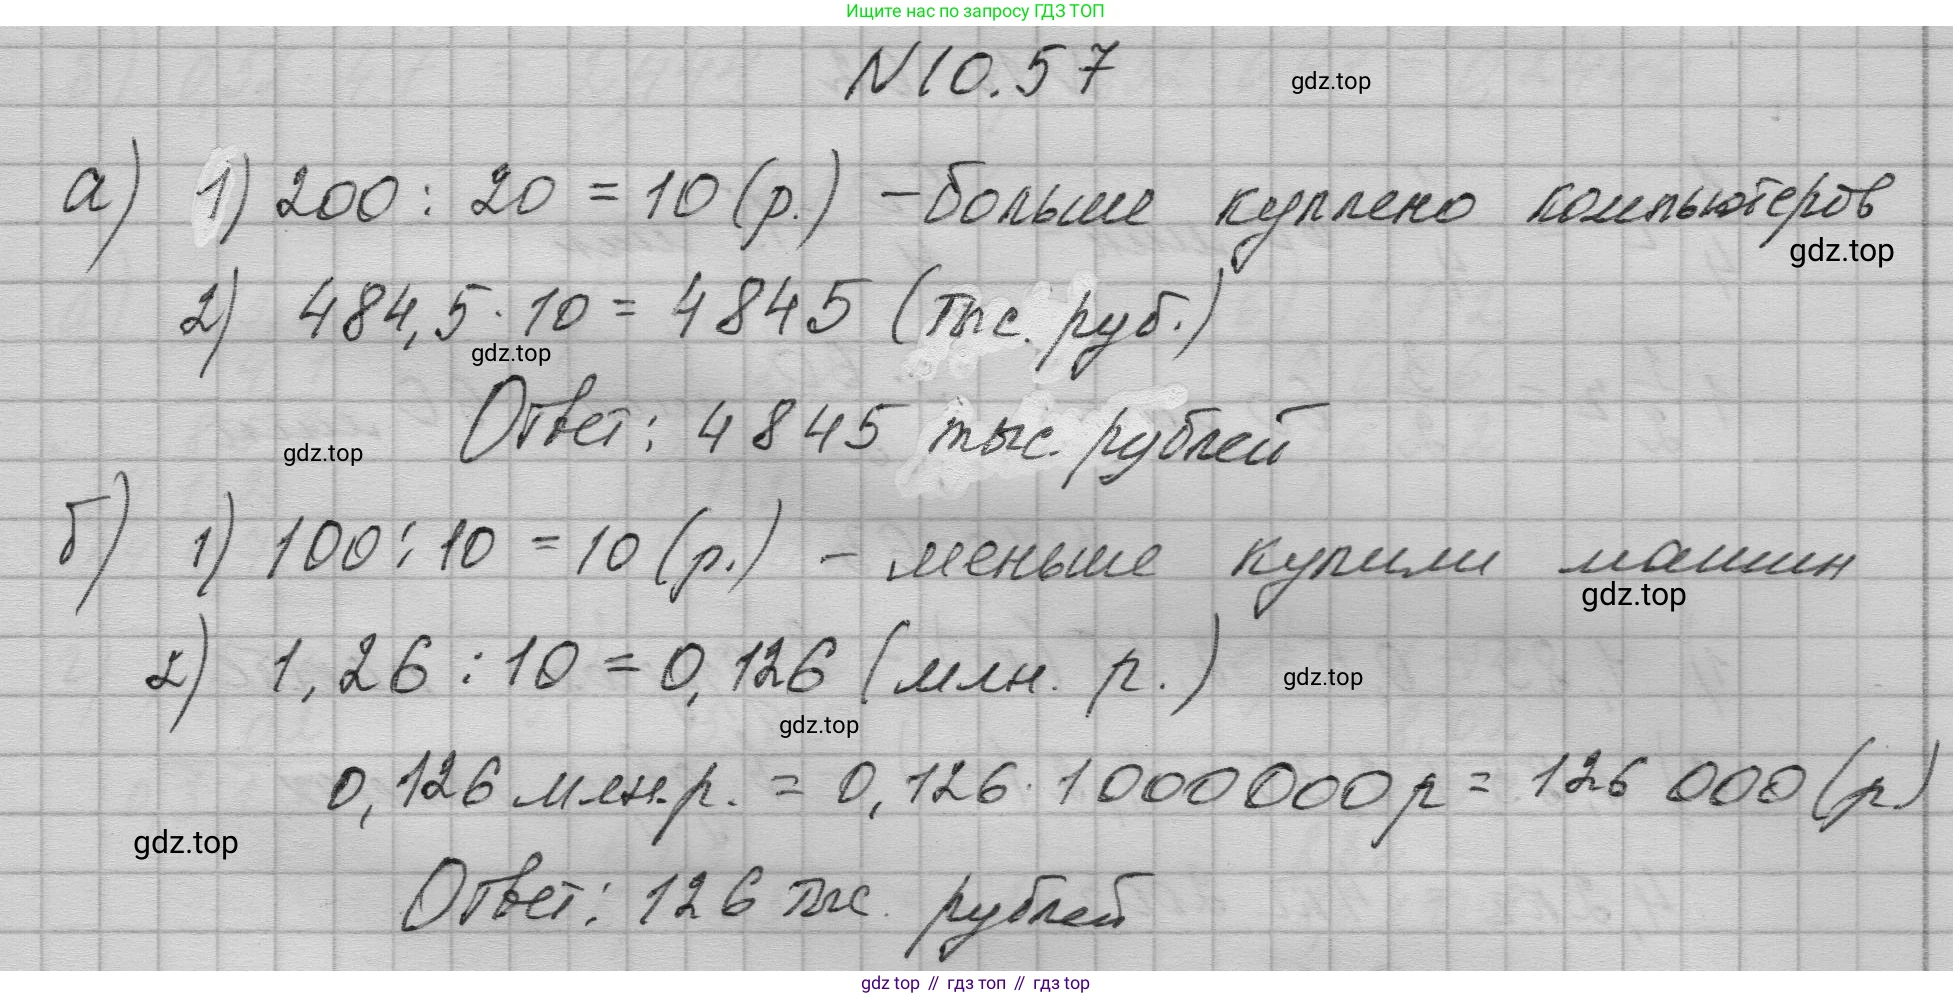 Ищите нас по запросу ГДЗ ТОП
N10.57
gdz.top
а) 1) 200 : 20 = 10 (р.) – больше куплено компьютеров
gdz.top
2) 484,5 · 10 = 4845 (тыс. руб.)
gdz.top
Ответ: 4845 тыс. рублей
gdz.top
б) 1) 100 : 10 = 10 (р.) – меньше купили машин
gdz.top
2) 1,26 : 10 = 0,126 (млн. р.)
gdz.top
gdz.top
0,126 млн.р. = 0,126 · 1000000р = 126 000 (р)
gdz.top
Ответ: 126 тыс. рублей
gdz top // гдз топ // гдз top